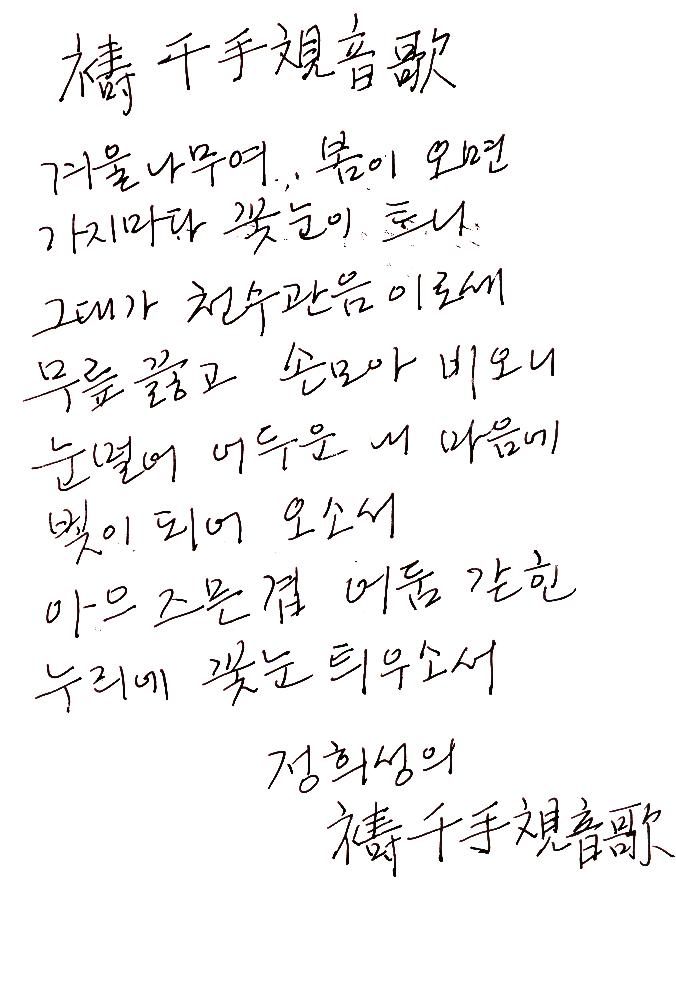 禱千手観音歌
겨울나무여, 봄이 오면
가지마다 꽃눈이 트니
그대가 천수관음이로세
무릎 꿇고 손모아 비오니
눈멀어 어두운 내 마음에
빛이 되어 오소서
아으 즈믄겁 어둠 갇힌
누리에 꽃눈 틔우소서
정희성의
禱千手観音歌